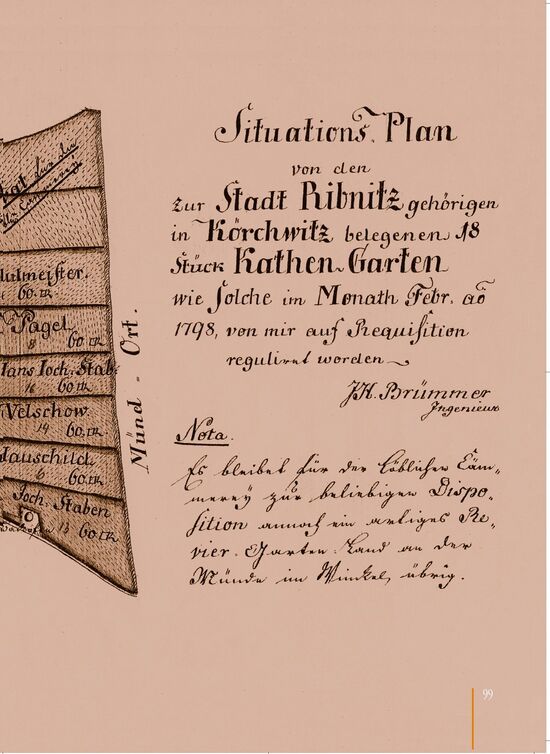 Situations Plan
von den
zur Stadt Ribnitz gehörigen
in Körchwitz belegenen 18
Stück Kathen-Garten
wie solche im Monath Febr. aõ
1798, von mir auf Requisition
reguliret worden
J.H. Brümmer
Ingenieur
Nota.
Es bleibet für der Löblichen Cäm-
merey zur beliebigen Dispo-
sition annoch ein artiges Re-
vier Garten-Land an der
Münde im Winkel, übrig.
Münd-Ort.
hulmeister.
60. IR.
Pagel
8 60 IR
Hans Joch. Stab
16 60 IR
Velschow
14 60. IR
Hauschild
6 60 IR
Joch. Staben
13 60 IR
99